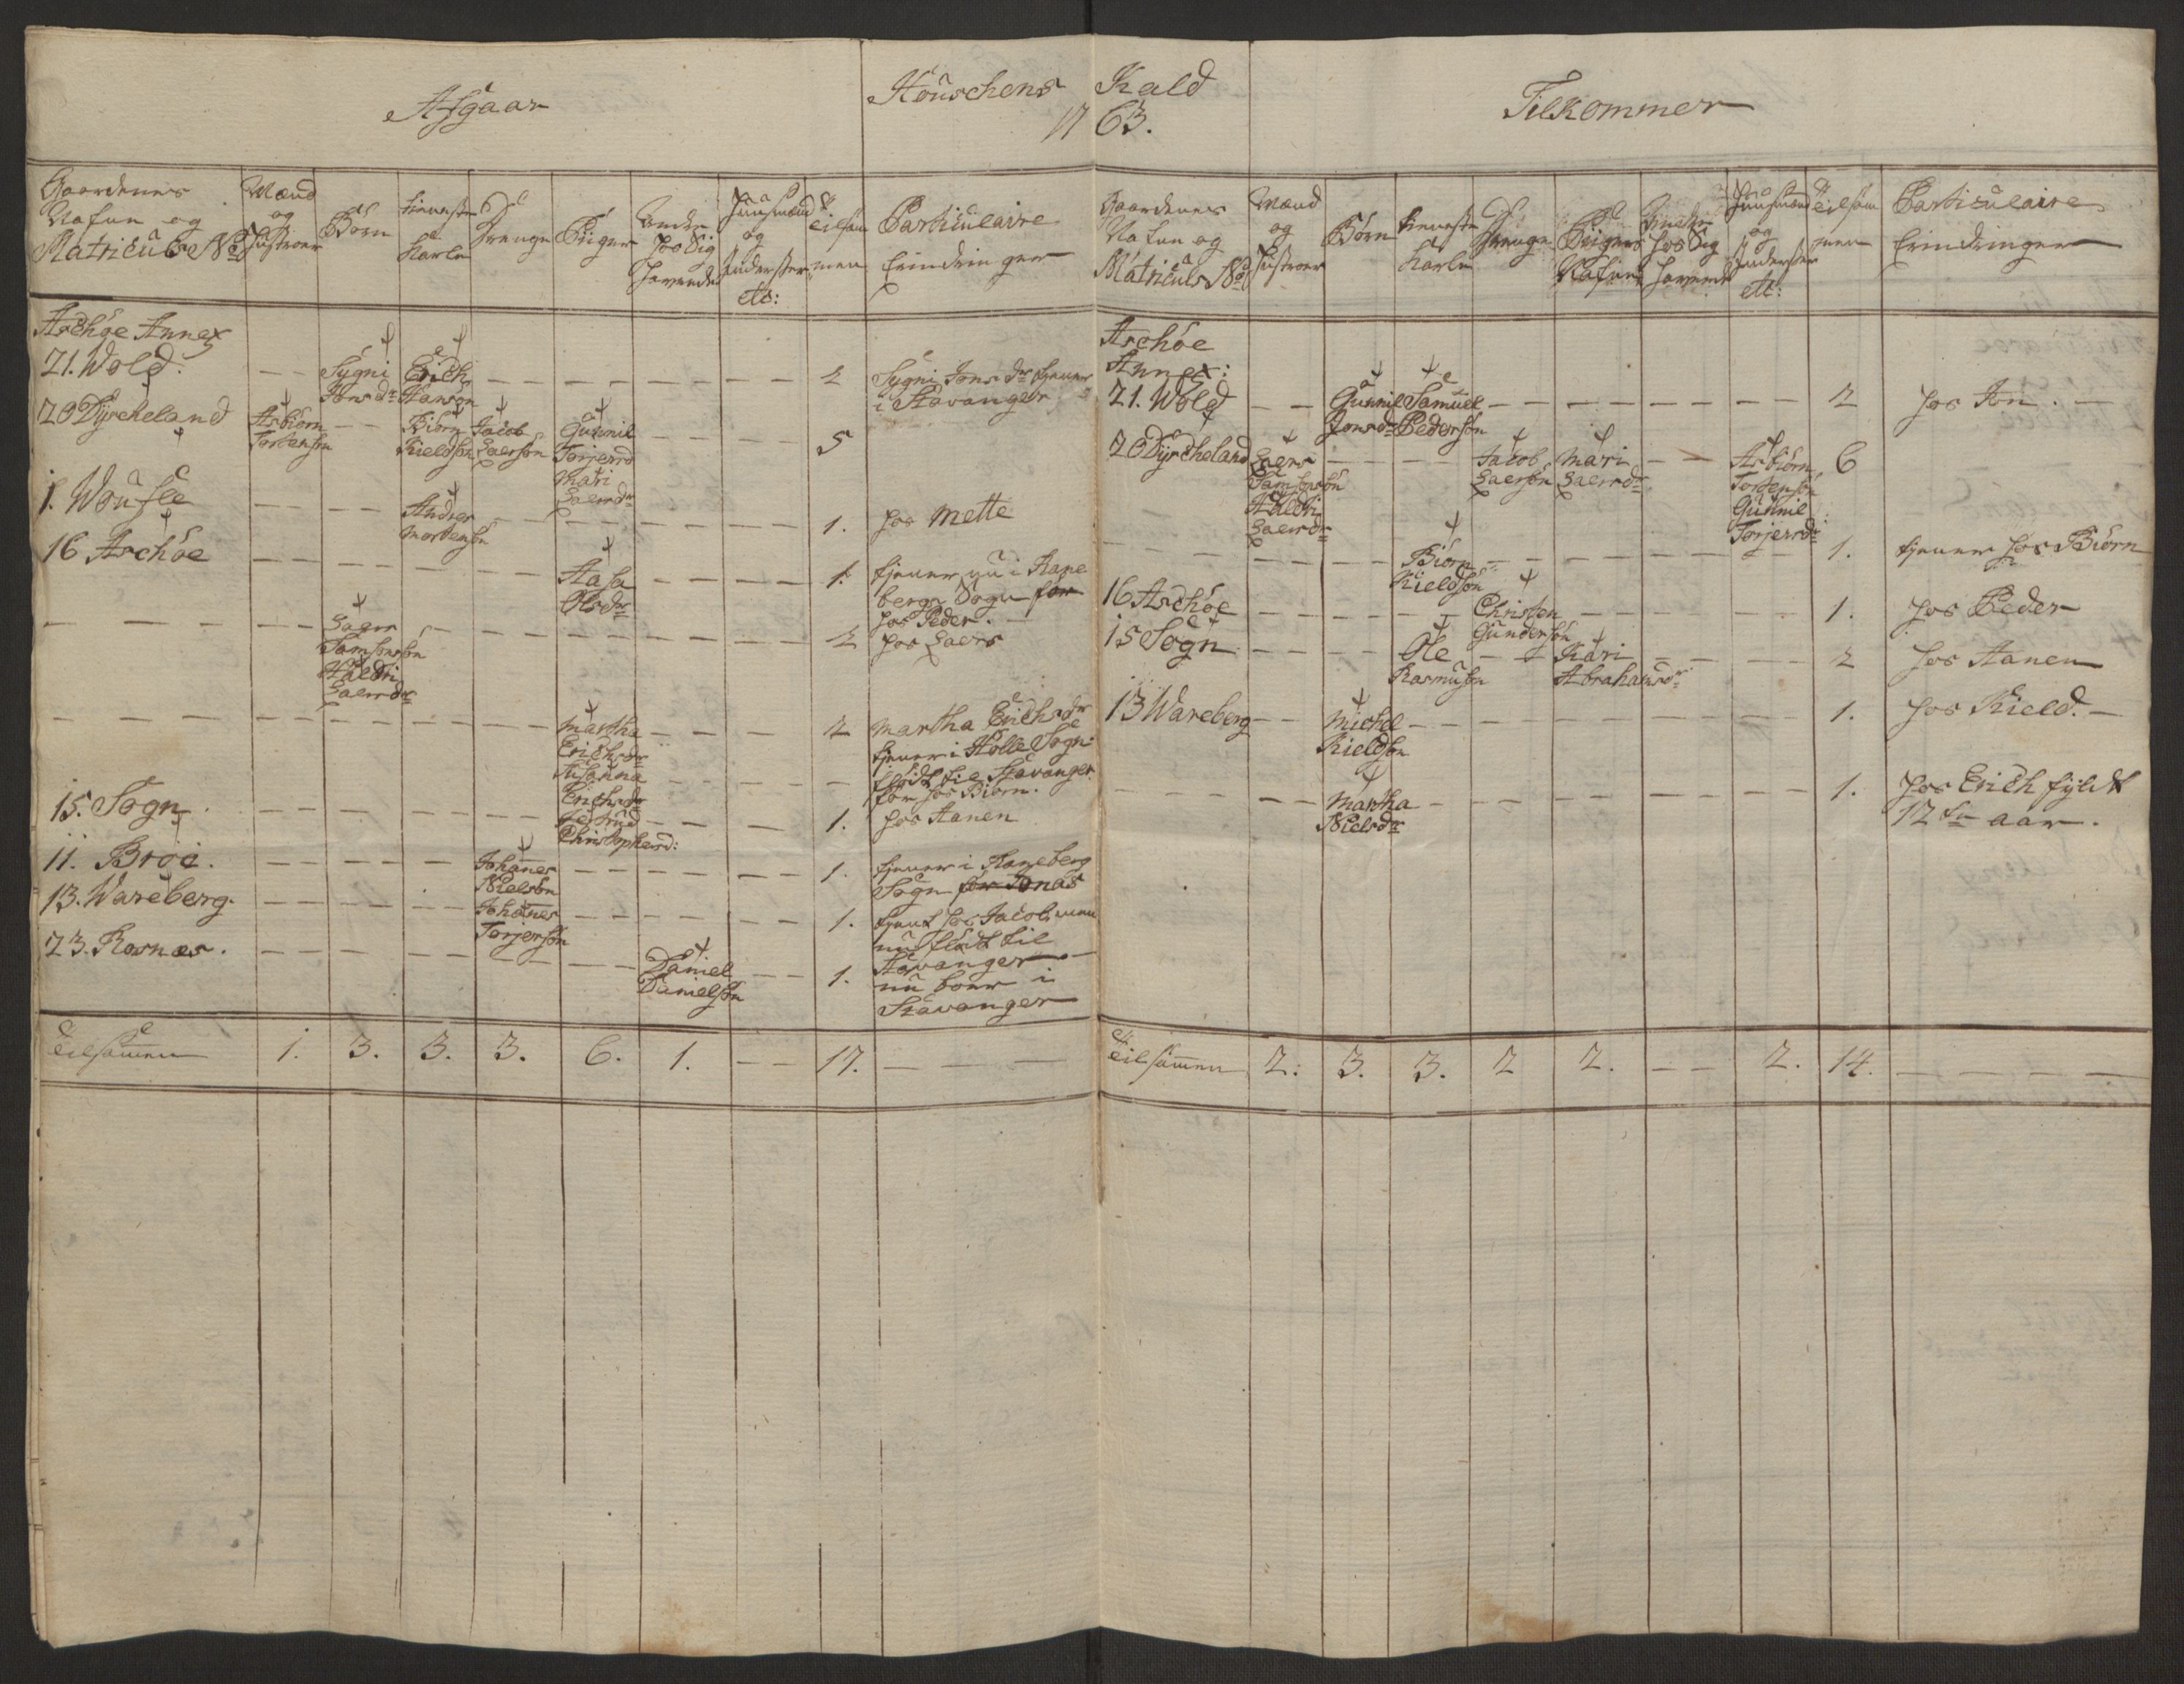 Afgaar
Houschens Kald
1763.
Tilkommer
Gaardenes Nafne og Matriculs No
Mænd og Hustroer
Börn
tieneste Karle
Drenge
Piiger
Andre Hos Sig havende
Huusmænd og Inderster etc:
Tilsammen
Particulaire Erindringer
Aschöe Annex
21. Wold. — — Sygni Jonsdr Erich Hansøn — — — — — 2 Sygni Jons dr tjener i Stavanger
20 Dyscheland Asbiörn Torbensøn — — Biörn Kieldsøn Jacob Laersøn Gunnil Torjersd Mari Laersdr — — — 5
1. Woufle — — — Andres Mortensøn — — — — 1. hos Mette
16 Aschöe — — — — — Aasa Olsdr — — — 1. tjener nu i Rane bergs Sogn før hos Peder.
— — — Laers Samsonsøn Haldri Laersdr — — — — — 2 hos Laers
— — — — — — Martha Erichsdr Susanna Erichsdr — — — 2 Martha Erichsdr tjener i Holle Sogn: flödt til Stavanger för hos Biörn.
15. Sogn — — — — — Gertrud Christophersd: — — 1. hos Aanen
11. Bröe. — — — Johanes Nielsøn — — — — 1. tjener i Raneberg Sogn for Jonas
13. Wareberg. — — — Johanes Torjersøn — — — — 1. tjent hos Jacob, men nu flödt til Stavanger
23. Rosnæs. — — — — — — Daniel Danielsøn — — 1. nu boer i Stavanger
Tilsammen 1. 3. 3. 3. 6. 1. — — 17. — — —
Gaardenes Nafne og Matriculs No
Mænd og Hustroer
Börn
tieneste Karle
Drenge
Piigers Nafne
Andre hos Sig havende
Huusmænd og Inderster etc:
Tilsammen
Particulaire Erindringer
Aschöe Annex:
21. Wold — — Gunnil Jonsdr Samuel Pedersøn — — — — — 2 hos Jon. —
20 Dyscheland Laers Samsonsøn Haldri Laersdr — — — Jacob Laersøn Mari Laersdr — — Asbiörn Torbensøn Gunnil Torjersdr 6
— — — — Biörn Kieldsøn — — — — 1. tjener hos Biörn
16 Aschöe — — — — Christen Gundersøn — — — 1. hos Peder
15 Sogn — — — — Ole Rasmusøn — — Kari Abrahamsdr — — 2 hos Aanen
13 Wareberg — — Michel Kieldsøn — — — — — 1. hos Kield. —
— — — — Martha Nielsdr — — — — — 1. hos Erich fyldt 12te aar.
Tilsammen 2. 3. 3. 2 2. — — 2. 14. — — — —